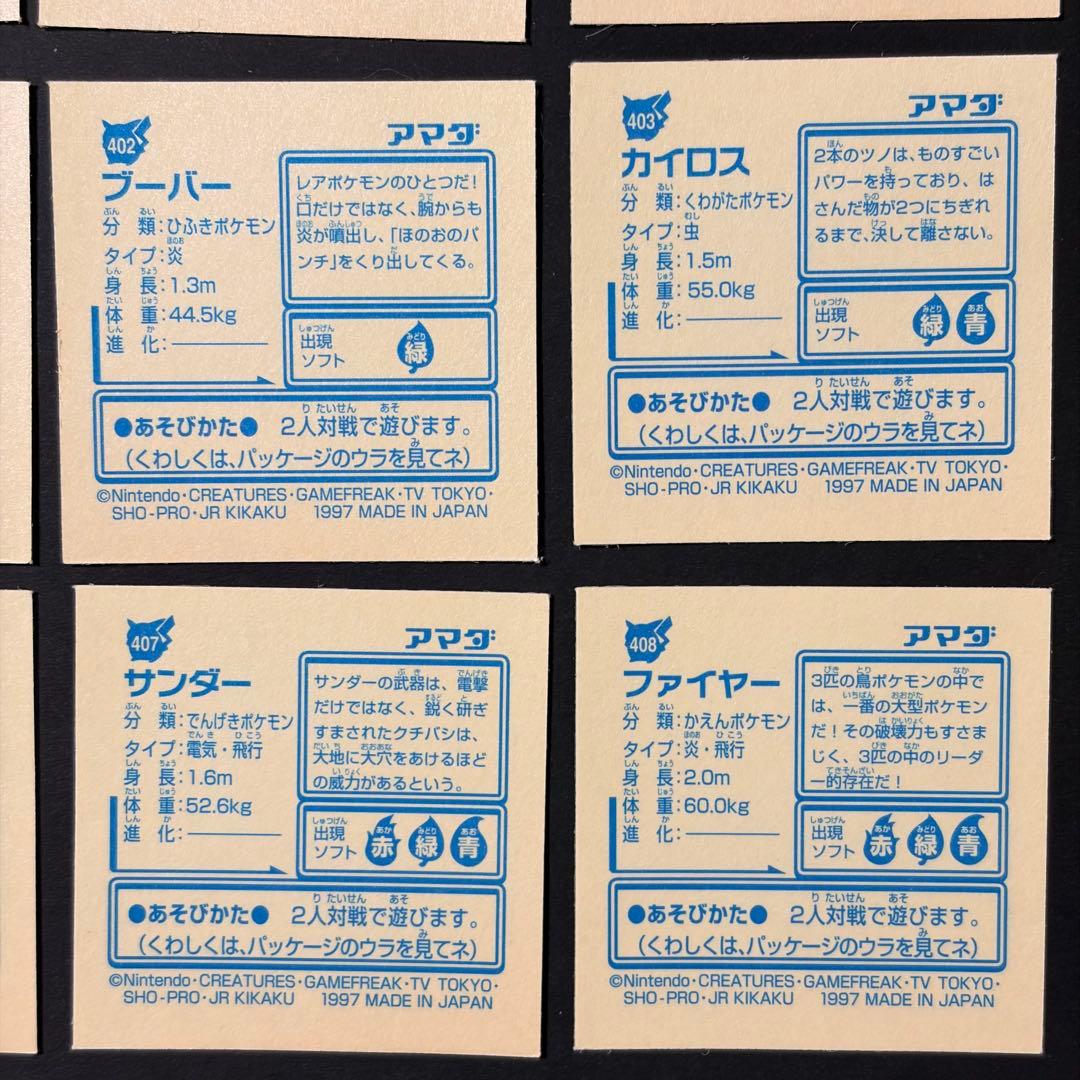 402
アマダ
ブーバー
分類:ひふきポケモン
タイプ:炎
身長:1.3m
体重:44.5kg
進化:
レアポケモンのひとつだ!
口だけではなく、腕からも
炎が噴出し、「ほのおのパ
ンチ」をくり出してくる。
出現
ソフト
緑
●あそびかた● 2人対戦で遊びます。
(くわしくは、パッケージのウラを見てネ)
©Nintendo・CREATURES・GAMEFREAK・TV TOKYO・
SHO-PRO・JR KIKAKU 1997 MADE IN JAPAN
403
アマダ
カイロス
分類:くわがたポケモン
タイプ:虫
身長:1.5m
体重:55.0kg
進化:
2本のツノは、ものすごい
パワーを持っており、は
さんだ物が2つにちぎれ
るまで、決して離さない。
出現
ソフト
緑 青
●あそびかた● 2人対戦で遊びます。
(くわしくは、パッケージのウラを見てネ)
©Nintendo・CREATURES・GAMEFREAK・TV TOKYO・
SHO-PRO・JR KIKAKU 1997 MADE IN JAPAN
407
アマダ
サンダー
分類:でんげきポケモン
タイプ:電気・飛行
身長:1.6m
体重:52.6kg
進化:
サンダーの武器は、電撃
だけではなく、鋭く研ぎ
すまされたクチバシは、
大地に大穴をあけるほど
の威力があるという。
出現
ソフト
赤 緑 青
●あそびかた● 2人対戦で遊びます。
(くわしくは、パッケージのウラを見てネ)
©Nintendo・CREATURES・GAMEFREAK・TV TOKYO・
SHO-PRO・JR KIKAKU 1997 MADE IN JAPAN
408
アマダ
ファイヤー
分類:かえんポケモン
タイプ:炎・飛行
身長:2.0m
体重:60.0kg
進化:
3匹の鳥ポケモンの中で
は、一番の大型ポケモン
だ!その破壊力もすさま
じく、3匹の中のリーダ
ー的存在だ!
出現
ソフト
赤 緑 青
●あそびかた● 2人対戦で遊びます。
(くわしくは、パッケージのウラを見てネ)
©Nintendo・CREATURES・GAMEFREAK・TV TOKYO・
SHO-PRO・JR KIKAKU 1997 MADE IN JAPAN